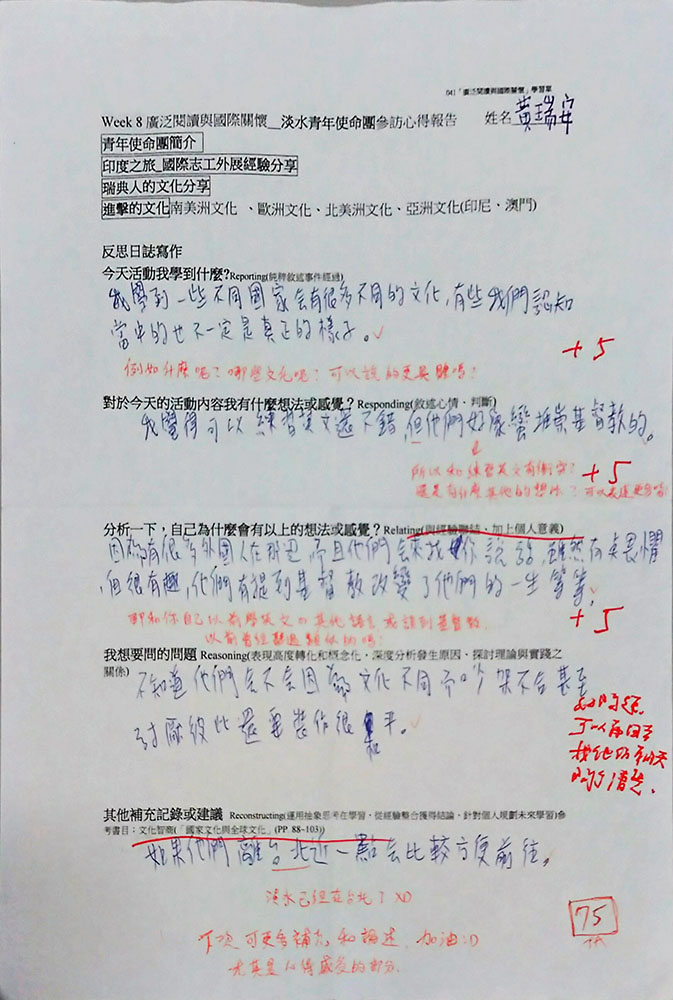 041「廣泛閱讀與國際關懷」學習單
Week 8 廣泛閱讀與國際關懷__淡水青年使命團參訪心得報告 姓名 黃瑞安
青年使命團簡介
印度之旅_國際志工外展經驗分享
瑞典人的文化分享
進擊的文化南美洲文化 、歐洲文化、北美洲文化、亞洲文化(印尼、澳門)
反思日誌寫作
今天活動我學到什麼?Reporting(純粹敘述事件經過)
我學到一些不同國家会有很多不同的文化,有些我們認知
當中的也不一定是真正的樣子。
+5
例如什麼呢?哪些文化呢?可以說的更具體嗎?
對於今天的活動內容我有什麼想法或感覺?Responding(敘述心情、判斷)
我覺得可以練習英文還不錯,但他們好像蠻推崇基督教的。
所以和練習英文有衝突?
+5
還是有什麼其他的想法?可以表達更多唷!
分析一下,自己為什麼會有以上的想法或感覺?Relating(與經驗聯結、加上個人意義)
因為有很多外國人在那边,而且他們会來找你說話,雖然有点畏懼
但很有趣,他們有提到基督教改變了他們的一生等等。
+5
那和你自己以前學英文或其他語言
以前曾經聽過類似的嗎?
我想要問的問題 Reasoning(表現高度轉化和概念化、深度分析發生原因、探討理論與實踐之
關係)
不知道他們会不会因為文化不同而吵架不合甚至
討厭彼此還要裝作很和平。
好問題
可以再回去
找他們聊天
其他補充記錄或建議 Reconstructing(運用抽象思考在學習,從經驗整合獲得結論、針對個人規劃未來學習)參
考書目:文化智商(「國家文化與全球文化」(PP. 88~103))
如果他們離台北近一點会比較方便前往。
淡水已經在台北了 XD
75
下次可更多補充和論述,加油:D
尤其是心得感受的部分.